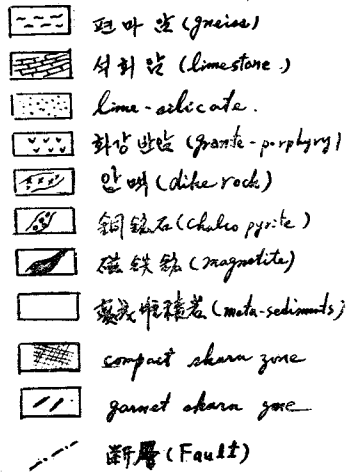 편마암(gneiss)
석회암(limestone.)
lime-silicate.
화강반암(granite-porphyry)
암맥(dike rock)
銅鉱石(chalcopyrite)
磁鉄鉱(magnetite)
堆積岩(meta-sediments)
compact skarn zone
garnet skarn zone
断層(Fault)